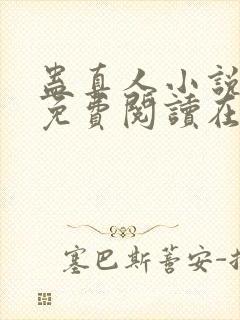 蛊真人小說
免費閱讀在
塞巴斯蒈安-